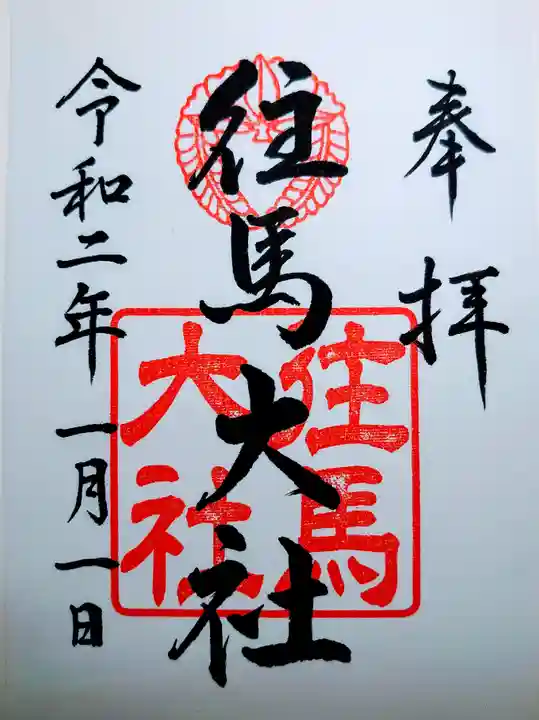 奉拝
往馬大社
往馬
大社
令和二年一月一日